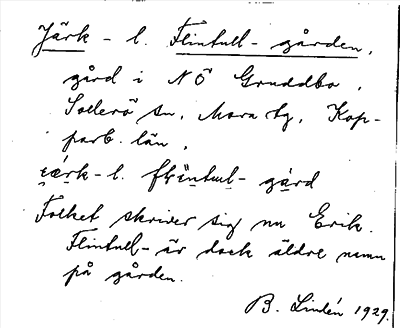 Järk - l. Flintull- gården,
gård i NÖ Gruddbo,
Sollerö sn, Mora tg, Kop-
parb. län,
l. gård
Folket skriver sig nu Erik.
Flintull- är dock äldre namn
på gården.
B. Lindén 1929.